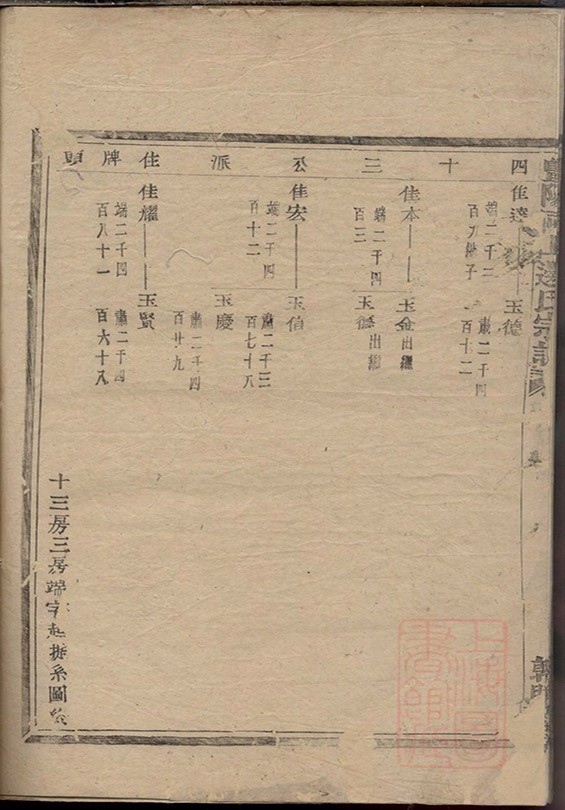 四十三公派住牌頭
佳達
玉德
肅二千四
百十二
佳本
端二千四
百三
玉金出繼
玉德出繼
佳宏
端二千四
百十二
玉信
肅二千三
百七十八
玉慶
肅二千四
百廿九
佳耀
端二千四
百八十一
玉賢
肅二千四
百六十八
十三房三房端字起排系圖終
上海圖書館藏